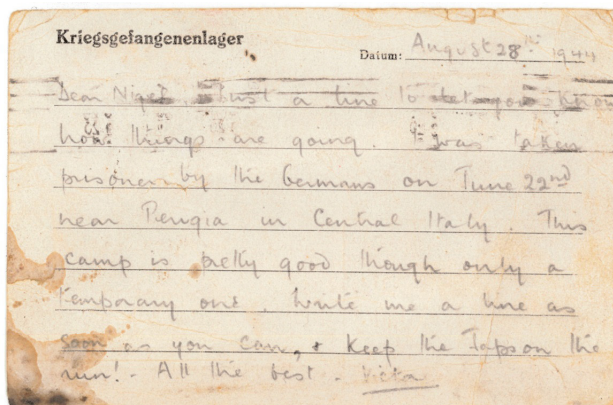 Kriegsgefangenenlager
Datum: August 28th 1944
Dear Nigel. Just a line to let you know
how things are going. I was taken
prisoner by the Germans on June 22nd
near Perugia in Central Italy. This
camp is pretty good though only a
temporary one. Write me a line as
soon as you can, & keep the Japs on the
run! - All the best - Victor